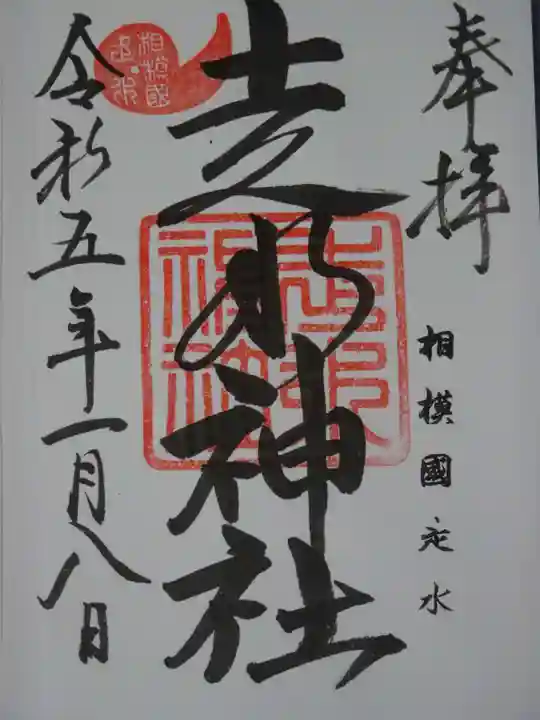 奉拝
相模國走水
走水神社
走水神社
相模國
走水
令和五年一月八日